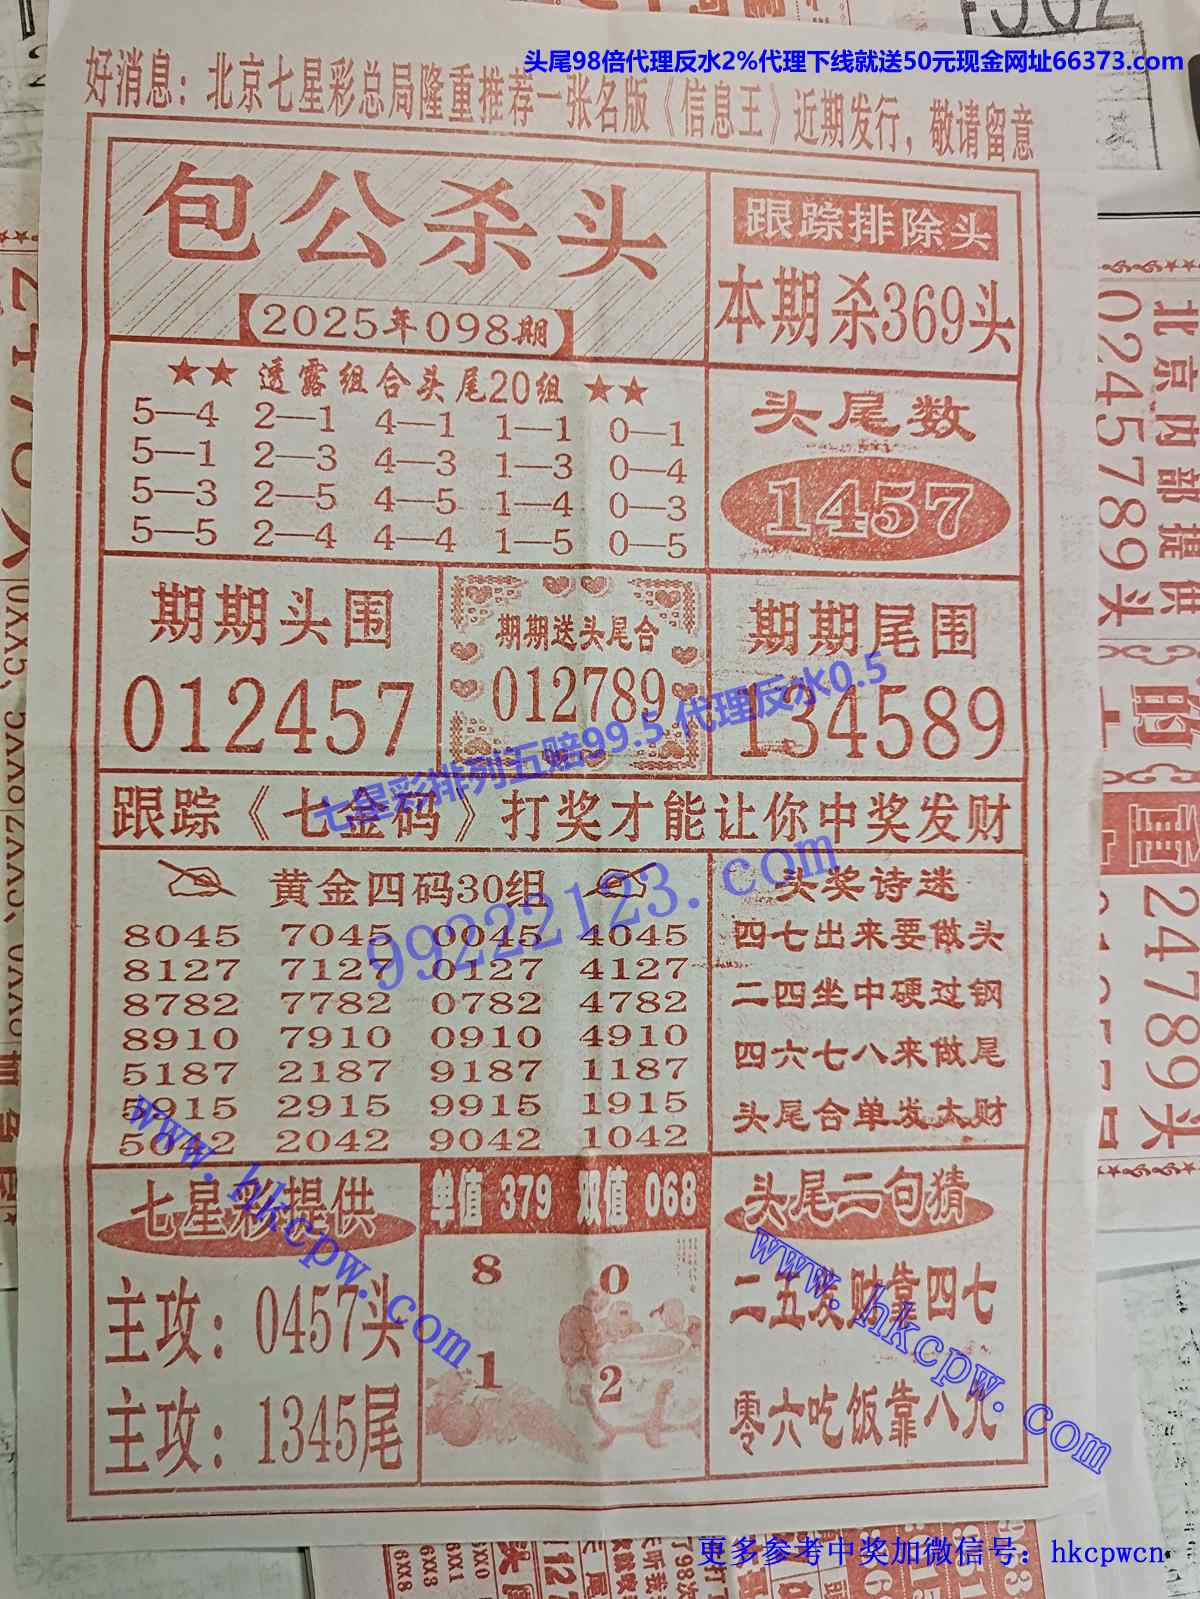 头尾98倍代理反水2%代理下线就送50元现金网址66373.com
好消息：北京七星彩总局隆重推荐一张名版《信息王》近期发行，敬请留意
包公杀头
【2025年098期】
跟踪排除头
本期杀369头
★★ 透露组合头尾20组 ★★
5—4 2—1 4—1 1—1 0—1
5—1 2—3 4—3 1—3 0—4
5—3 2—5 4—5 1—4 0—3
5—5 2—4 4—4 1—5 0—5
头尾数
1457
期期头围
012457
期期送头尾合
012789
期期尾围
134589
七星彩排列五赔99.5 代理反水0.5
跟踪《七金码》打奖才能让你中奖发财
99222123.com
黄金四码30组
8045 7045 0045 4045
8127 7127 0127 4127
8782 7782 0782 4782
8910 7910 0910 4910
5187 2187 9187 1187
5915 2915 9915 1915
5042 2042 9042 1042
头奖诗迷
四七出来要做头
二四坐中硬过钢
四六七八来做尾
头尾合单发大财
www.hkcpw.com
七星彩提供
主攻：0457头
主攻：1345尾
单值 379 双值 068
8 0
1 2
头尾二句猜
二五发财靠四七
零六吃饭靠八九
www.hkcpw.com
更多参考中奖加微信号：hkcpwcn
北京内部提供
0245789头
24789头